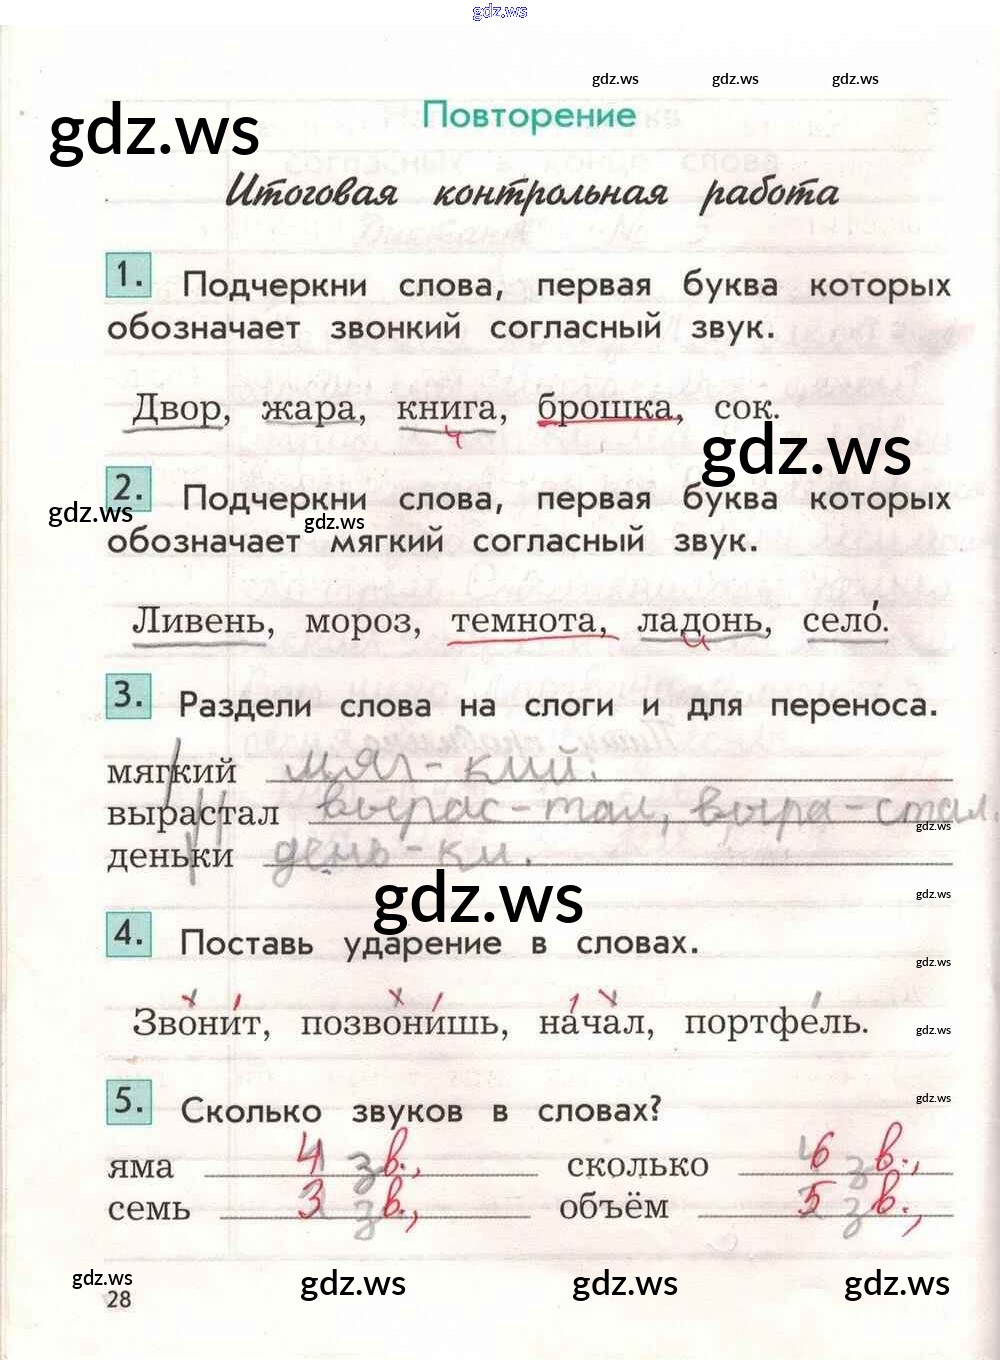 gdz.ws
gdz.ws gdz.ws gdz.ws
Повторение
gdz.ws
Итоговая контрольная работа
1. Подчеркни слова, первая буква которых
обозначает звонкий согласный звук.
Двор, жара, книга, брошка, сок.
gdz.ws
2. Подчеркни слова, первая буква которых
gdz.ws gdz.ws
обозначает мягкий согласный звук.
Ливень, мороз, темнота, ладонь, село́.
3. Раздели слова на слоги и для переноса.
мягкий мяг-кий.
вырастал вырас-тал, выра-стал.
gdz.ws
деньки день-ки.
gdz.ws
gdz.ws
4. Поставь ударение в словах.
gdz.ws
Звони́т, позвони́шь, на́чал, портфе́ль.
gdz.ws
5. Сколько звуков в словах?
gdz.ws
яма 4 зв., сколько 6 зв.,
семь 3 зв., объём 5 зв.,
gdz.ws gdz.ws gdz.ws gdz.ws
28